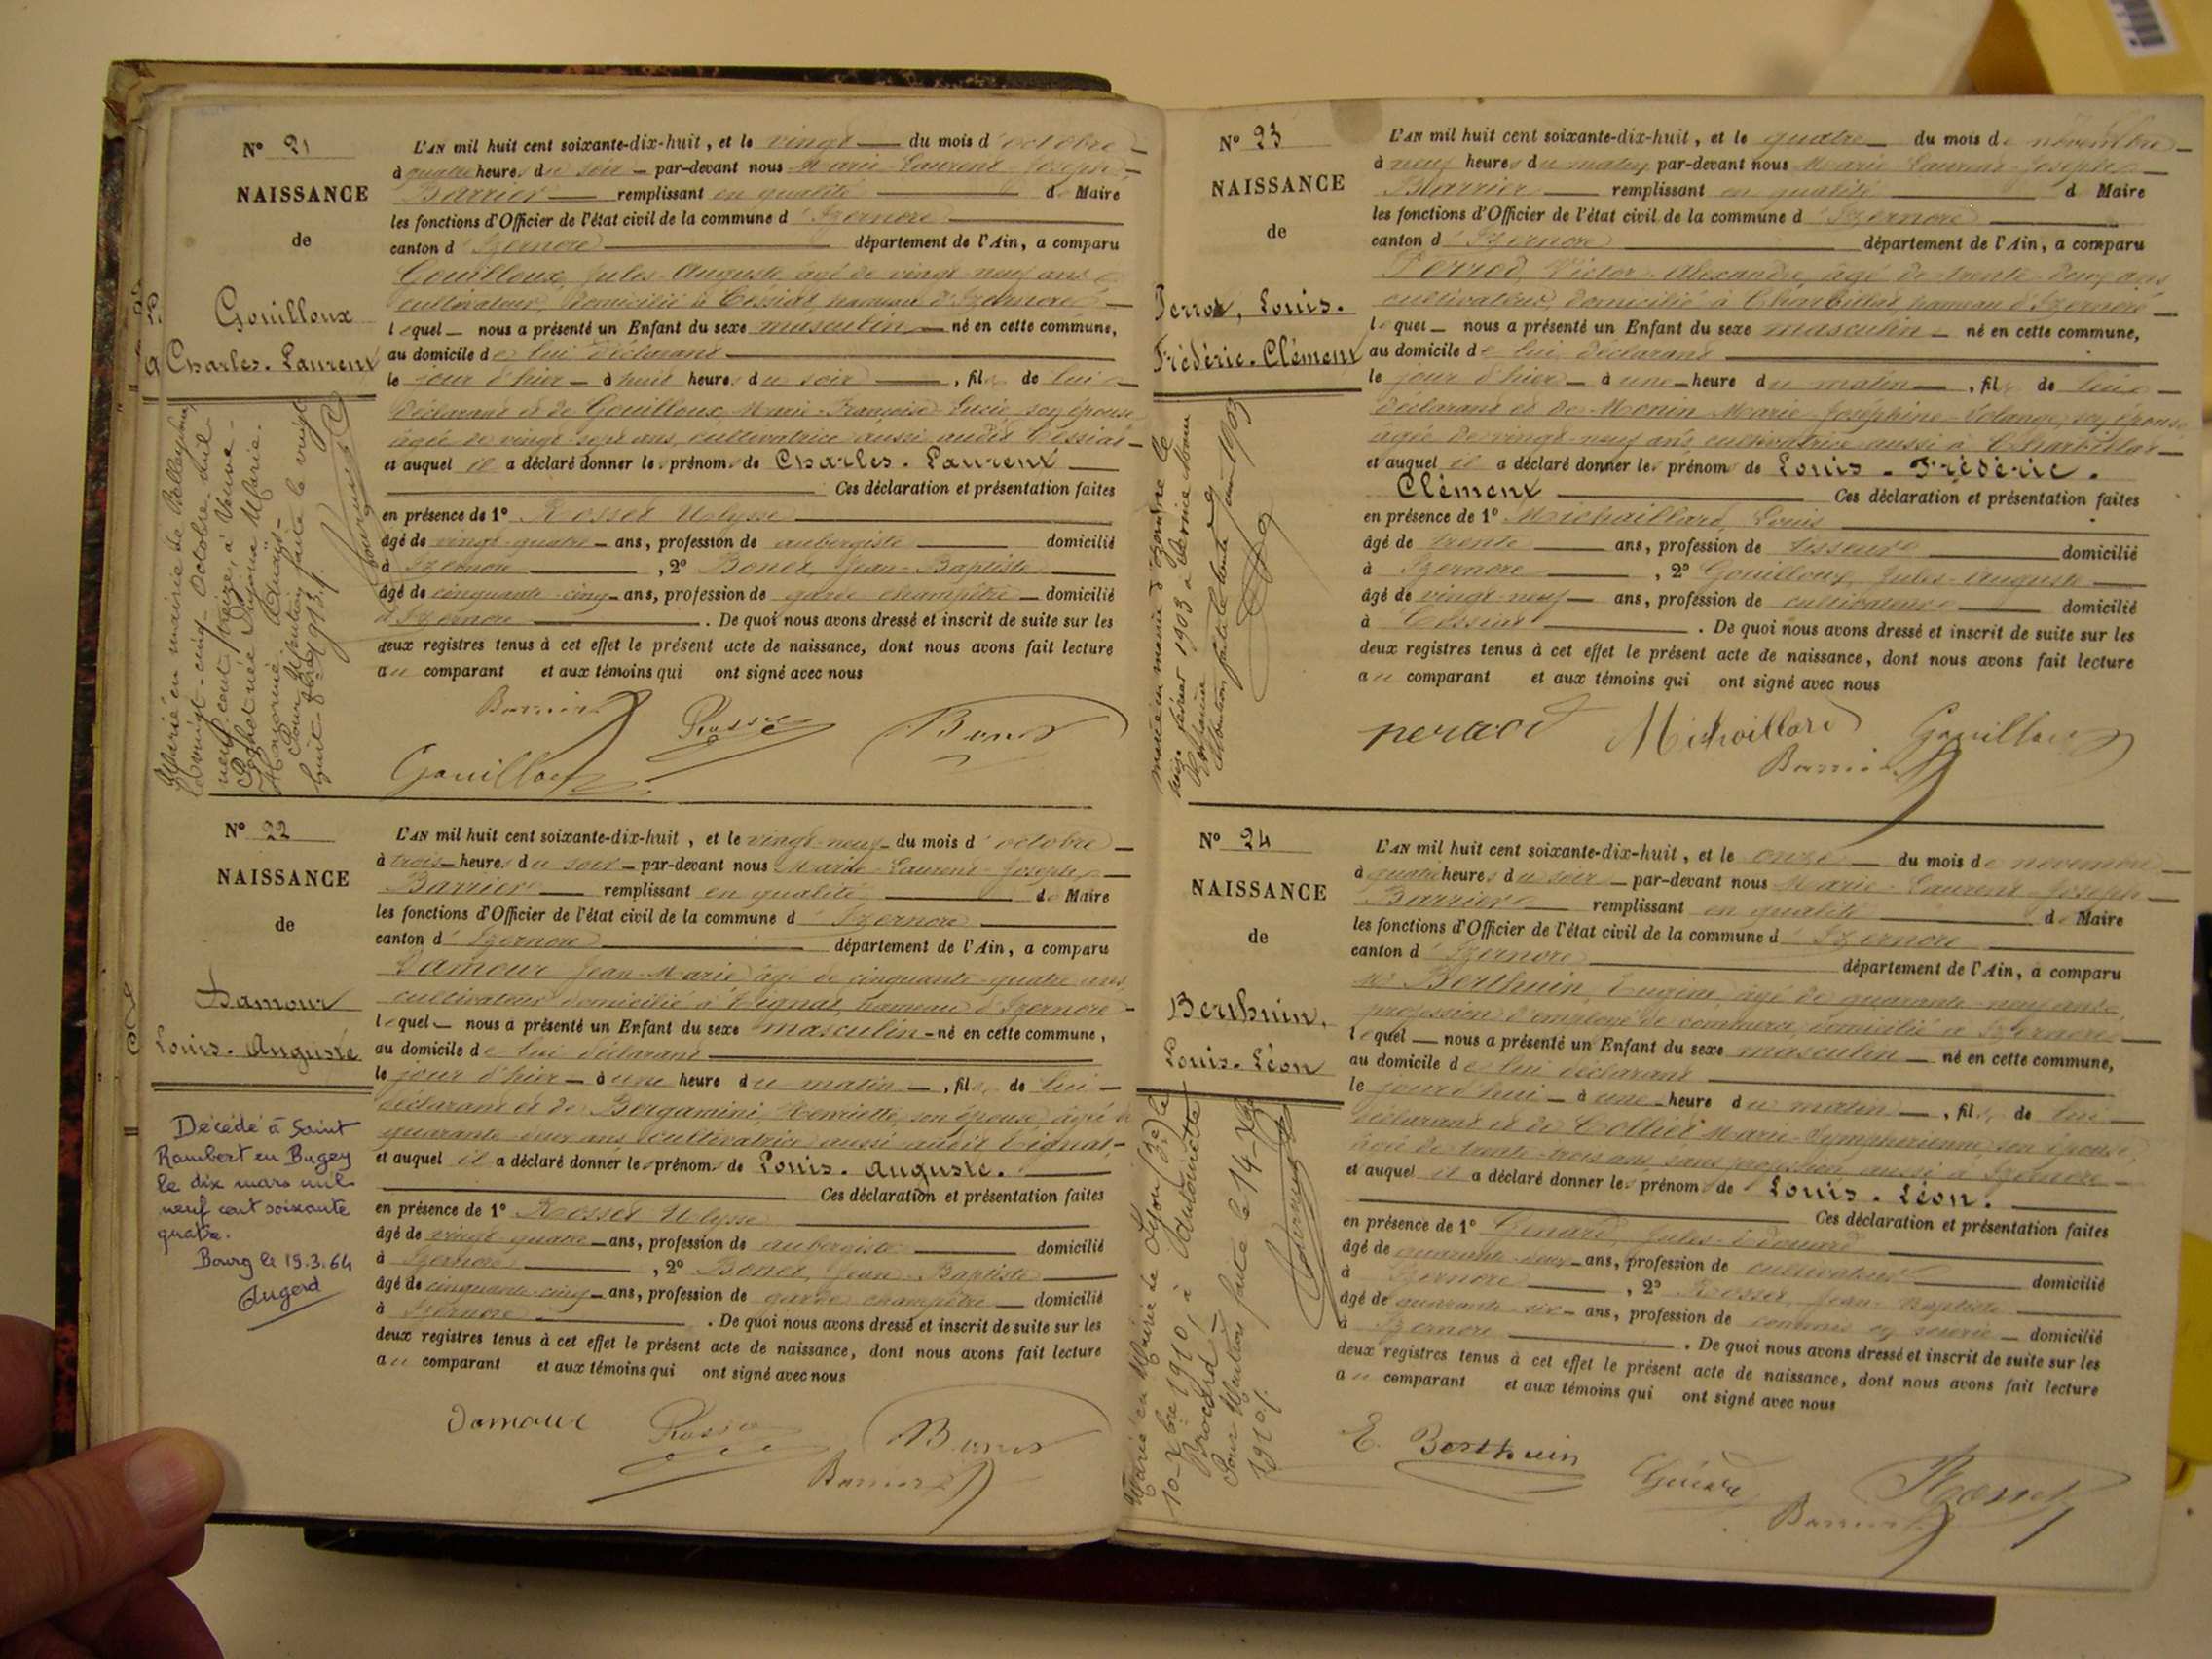 N° 21
NAISSANCE
de
Gouilloux
Charles-Laurent
Marié en mairie de
le vingt-cinq Octobre mil
neuf cent treize, à
Marie
Pour Mention faite le vingt
huit 8bre 1913.
L'AN mil huit cent soixante-dix-huit, et le vingt du mois d'octobre
à quatre heures du soir par-devant nous Marie-Laurent-Joseph
Barrier remplissant en qualité de Maire
les fonctions d'Officier de l'état civil de la commune d'Izernore
canton d'Izernore département de l'Ain, a comparu
Gouilloux, Jules-Auguste, âgé de vingt-neuf ans
cultivateur, domicilié à Cessiat, hameau d'Izernore
lequel nous a présenté un Enfant du sexe masculin né en cette commune,
au domicile de lui déclarant
le jour d'hier à huit heures du soir, fils de lui
déclarant et de Gouilloux, Marie-Françoise Lucie, son épouse
âgée de vingt-sept ans, cultivatrice aussi audit Cessiat
et auquel il a déclaré donner les prénoms de Charles-Laurent
Ces déclaration et présentation faites
en présence de 1° Rosset Ulysse
âgé de vingt-quatre ans, profession de aubergiste domicilié
à Izernore, 2° Bonet, Jean-Baptiste
âgé de cinquante-cinq ans, profession de garde champêtre domicilié
à Izernore. De quoi nous avons dressé et inscrit de suite sur les
deux registres tenus à cet effet le présent acte de naissance, dont nous avons fait lecture
au comparant et aux témoins qui ont signé avec nous
Barrier Rosset Bonet
Gouilloux
N° 22
NAISSANCE
de
Damour
Louis-Auguste
Décédé à Saint
Rambert en Bugey
le dix mars mil
neuf cent soixante
quatre.
Bourg le 19.3.64
Augerd
L'AN mil huit cent soixante-dix-huit, et le vingt-neuf du mois d'octobre
à trois heures du soir par-devant nous Marie-Laurent-Joseph
Barrier remplissant en qualité de Maire
les fonctions d'Officier de l'état civil de la commune d'Izernore
canton d'Izernore département de l'Ain, a comparu
Damour Jean-Marie âgé de cinquante-quatre ans
cultivateur domicilié à Tignat, hameau d'Izernore
lequel nous a présenté un Enfant du sexe masculin né en cette commune,
au domicile de lui déclarant
le jour d'hier à une heure du matin, fils de lui
déclarant et de Bergamini, Henriette, son épouse, âgée de
quarante-deux ans cultivatrice aussi audit Tignat
et auquel il a déclaré donner les prénoms de Louis-Auguste.
Ces déclaration et présentation faites
en présence de 1° Rosset Ulysse
âgé de vingt-quatre ans, profession de aubergiste domicilié
à Izernore, 2° Bonet, Jean-Baptiste
âgé de cinquante-cinq ans, profession de garde champêtre domicilié
à Izernore. De quoi nous avons dressé et inscrit de suite sur les
deux registres tenus à cet effet le présent acte de naissance, dont nous avons fait lecture
au comparant et aux témoins qui ont signé avec nous
Damour Rosset Bonet
Barrier
N° 23
NAISSANCE
de
Perrod, Louis-
Frédéric-Clément
Marié en mairie d'
seize février 1903 à
Mention faite le
1903
L'AN mil huit cent soixante-dix-huit, et le quatre du mois de novembre
à neuf heures du matin par-devant nous Marie Laurent-Joseph
Barrier remplissant en qualité de Maire
les fonctions d'Officier de l'état civil de la commune d'Izernore
canton d'Izernore département de l'Ain, a comparu
Perrod, Victor-Alexandre, âgé de trente-deux ans
cultivateur, domicilié à Charbillat, hameau d'Izernore
lequel nous a présenté un Enfant du sexe masculin né en cette commune,
au domicile de lui déclarant
le jour d'hier à une heure du matin, fils de lui
déclarant et de Monin Marie-Joséphine-Solange, son épouse
âgée de vingt-neuf ans, cultivatrice aussi à Charbillat
et auquel il a déclaré donner les prénoms de Louis-Frédéric-
Clément Ces déclaration et présentation faites
en présence de 1° Michaillard, Louis
âgé de trente ans, profession de tisseur domicilié
à Izernore, 2° Gouilloux, Jules-Auguste
âgé de vingt-neuf ans, profession de cultivateur domicilié
à Cessiat. De quoi nous avons dressé et inscrit de suite sur les
deux registres tenus à cet effet le présent acte de naissance, dont nous avons fait lecture
au comparant et aux témoins qui ont signé avec nous
perrod Michaillard Gouilloux
Barrier
N° 24
NAISSANCE
de
Berthuin,
Louis-Léon
Marié en Mairie de Lyon (3e) le
10 Xbre 1910, à
Brocard
Pour Mention faite le 14 Xbre
1910.
L'AN mil huit cent soixante-dix-huit, et le onze du mois de novembre
à quatre heures du soir par-devant nous Marie-Laurent-Joseph
Barrier remplissant en qualité de Maire
les fonctions d'Officier de l'état civil de la commune d'Izernore
canton d'Izernore département de l'Ain, a comparu
Berthuin, Eugène, âgé de quarante-neuf ans
profession d'employé de commerce, domicilié à Izernore
lequel nous a présenté un Enfant du sexe masculin né en cette commune,
au domicile de lui déclarant
le jourd'hui à une heure du matin, fils de lui
déclarant et de Collet Marie-Symphorienne, son épouse,
âgée de trente-trois ans, sans profession aussi à Izernore
et auquel il a déclaré donner les prénoms de Louis-Léon.
Ces déclaration et présentation faites
en présence de 1° Jules-Edouard
âgé de quarante-deux ans, profession de cultivateur domicilié
à Izernore, 2° Rosset, Jean-Baptiste
âgé de quarante-six ans, profession de domicilié
à Izernore. De quoi nous avons dressé et inscrit de suite sur les
deux registres tenus à cet effet le présent acte de naissance, dont nous avons fait lecture
au comparant et aux témoins qui ont signé avec nous
E. Berthuin Rosset
Barrier